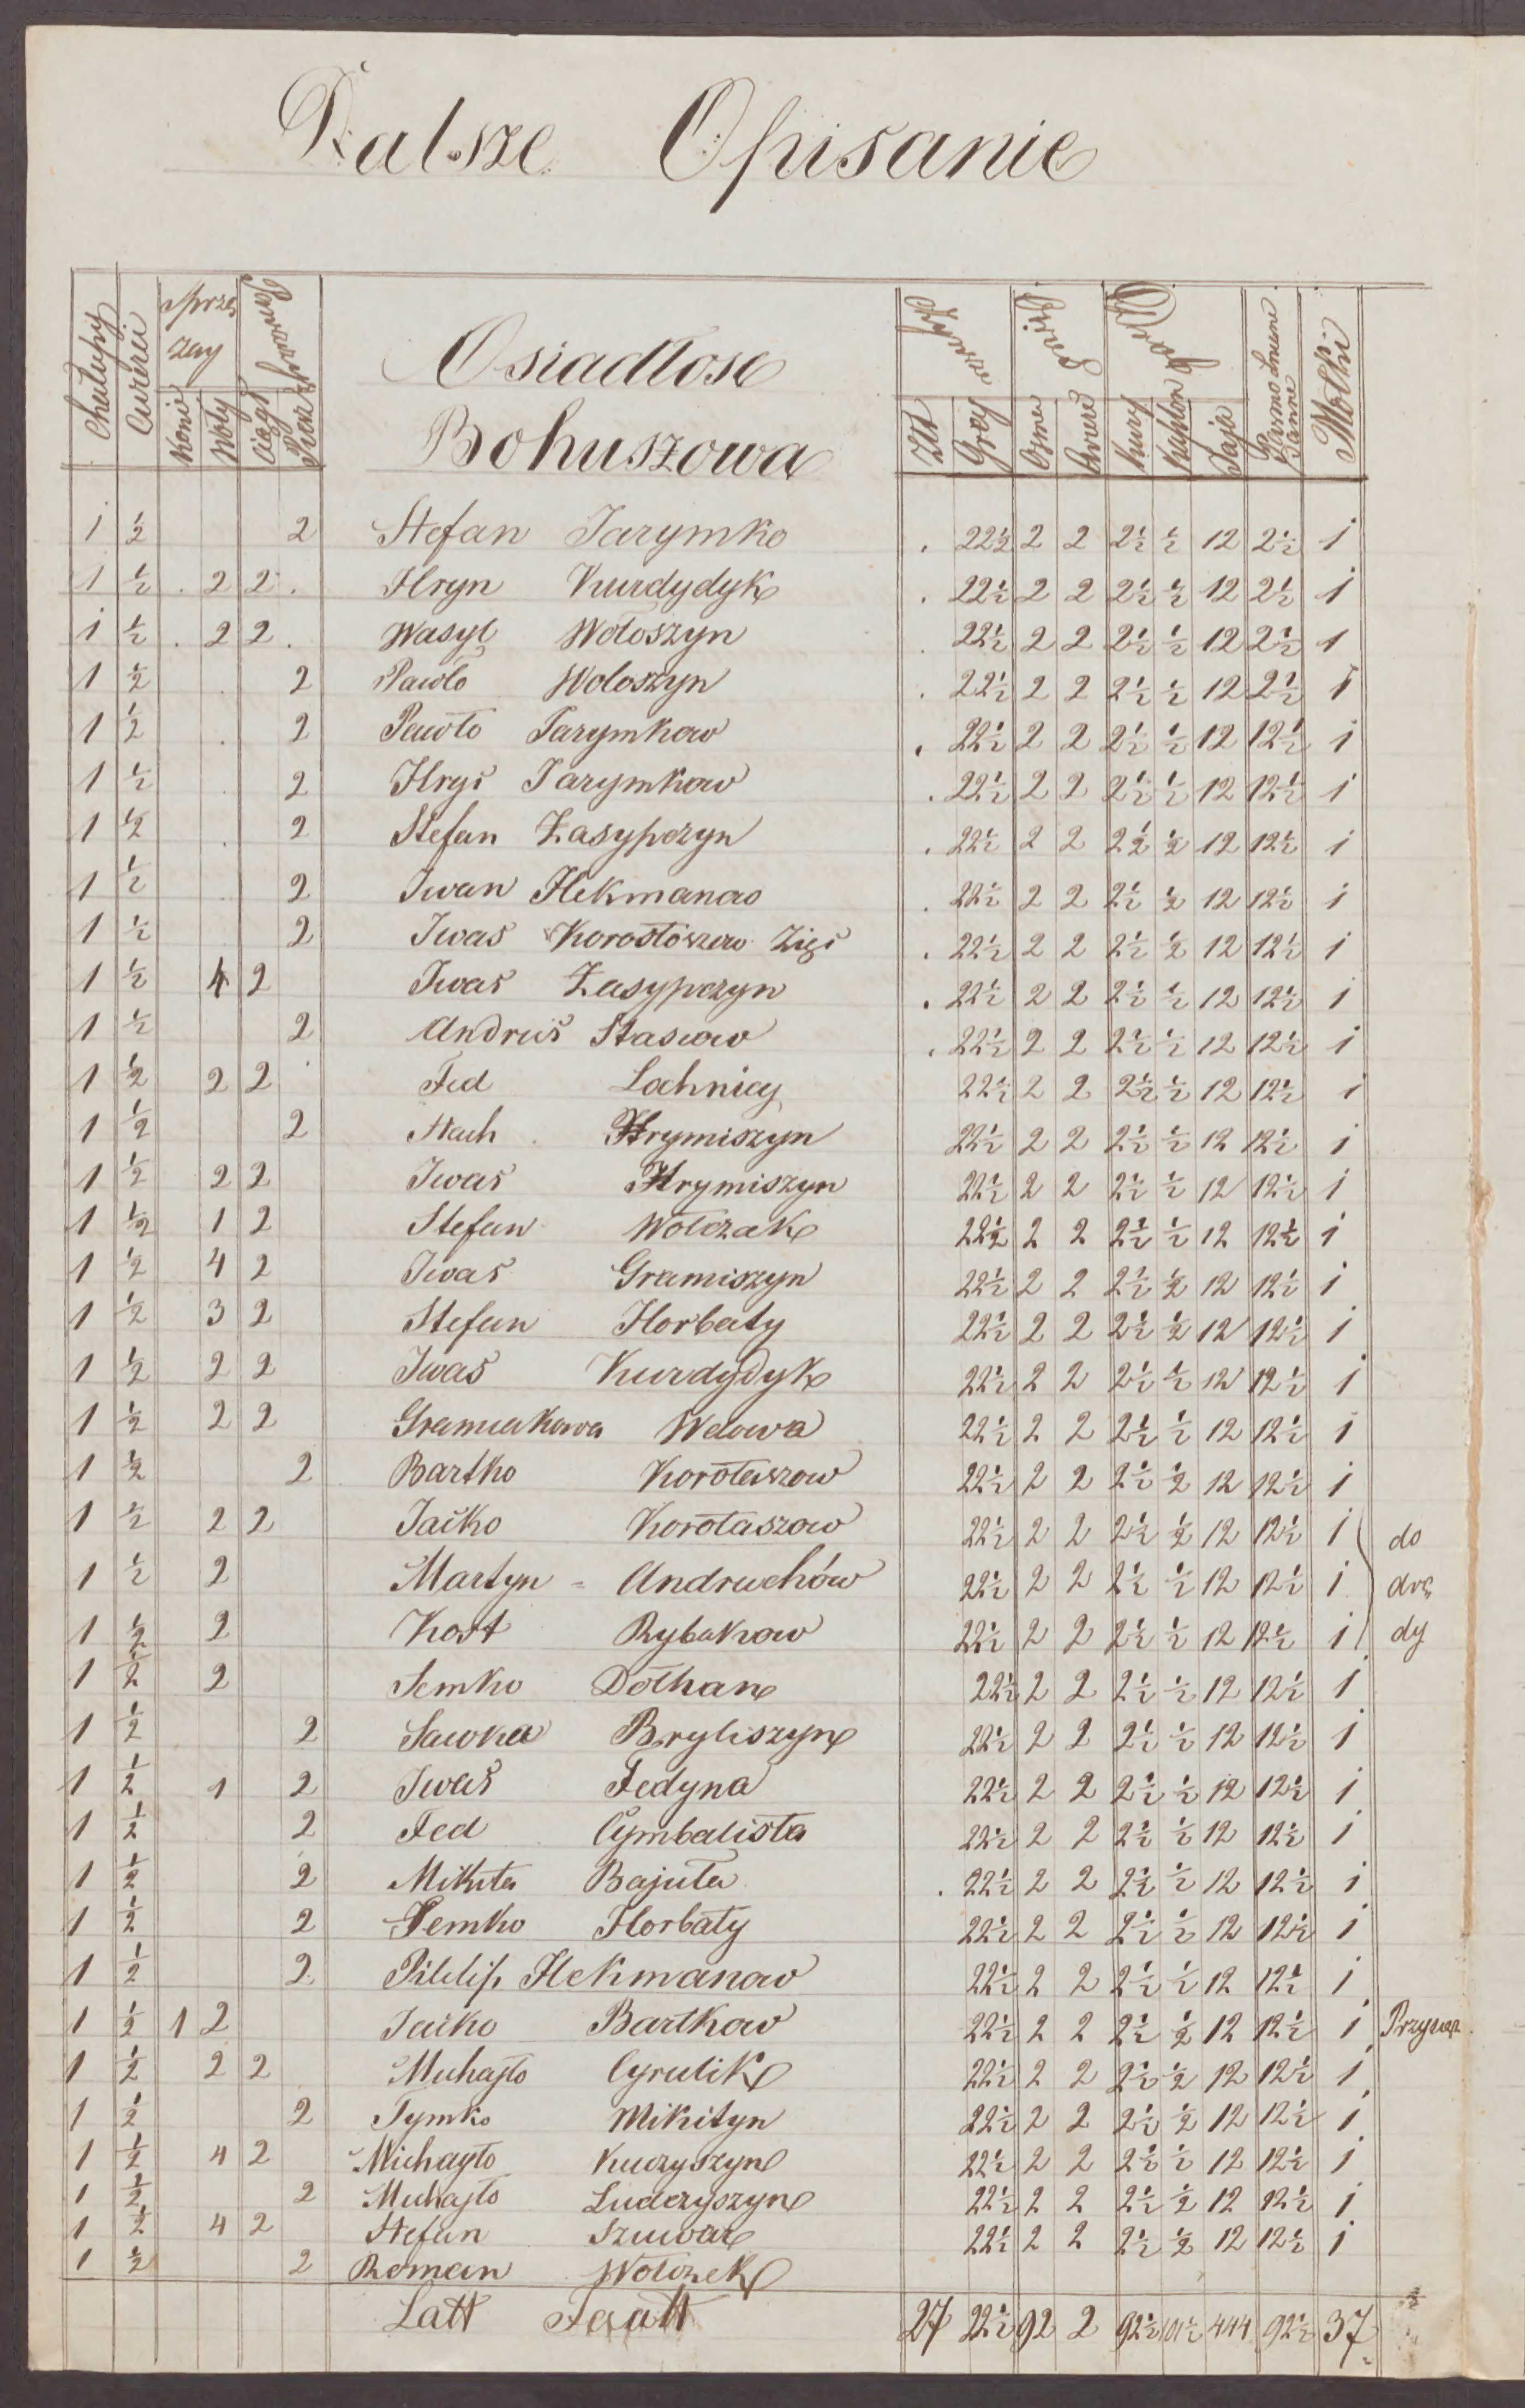 Dalsze Opisanie
Chałupy Cwierci Sprzę zay Konie Woły Ciągł Osiadłosc Bohuszowa Złł Grоy Kury Kapłon Jaja Motki
1 ½ 2 Stefan Jarymko 22½ 2 2 2½ ½ 12 2½ 1
1 ½ 2 2 Hryn Kurdydyk 22½ 2 2 2½ ½ 12 2½ 1
1 ½ 2 2 Wasyl Wołoszyn 22½ 2 2 2½ ½ 12 2½ 1
1 ½ 2 Pawło Wołoszyn 22½ 2 2 2½ ½ 12 2½ 1
1 ½ 2 Pawło Jarymkow 22½ 2 2 2½ ½ 12 12½ 1
1 ½ 2 Hryś Jarymkow 22½ 2 2 2½ ½ 12 12½ 1
1 ½ 2 Stefan Zasypczyn 22½ 2 2 2½ ½ 12 12½ 1
1 ½ 2 Iwan Hekmanow 22½ 2 2 2½ ½ 12 12½ 1
1 ½ 2 Iwaś Korostoszow Zięś 22½ 2 2 2½ ½ 12 12½ 1
1 ½ 4 2 Iwaś Zasypczyn 22½ 2 2 2½ ½ 12 12½ 1
1 ½ 2 Andruś Stasiow 22½ 2 2 2½ ½ 12 12½ 1
1 ½ 2 2 Fed Lahnicy 22½ 2 2 2½ ½ 12 12½ 1
1 ½ 2 Stach Hrymiszyn 22½ 2 2 2½ ½ 12 12½ 1
1 ½ 2 2 Iwaś Hrymiszyn 22½ 2 2 2½ ½ 12 12½ 1
1 ½ 1 2 Stefan Wołczak 22½ 2 2 2½ ½ 12 12½ 1
1 ½ 4 2 Iwaś Gramiszyn 22½ 2 2 2½ ½ 12 12½ 1
1 ½ 3 2 Stefan Horbaty 22½ 2 2 2½ ½ 12 12½ 1
1 ½ 2 2 Iwaś Kurdydyk 22½ 2 2 2½ ½ 12 12½ 1
1 ½ 2 2 Gramiakowa Wdowa 22½ 2 2 2½ ½ 12 12½ 1
1 ½ 2 Bartko Korotaszow 22½ 2 2 2½ ½ 12 12½ 1
1 ½ 2 2 Jaćko Korotaszow 22½ 2 2 2½ ½ 12 12½ 1 do
1 ½ 2 Martyn - Andruchów 22½ 2 2 2½ ½ 12 12½ 1 dvę
1 ½ 2 Kost Rybakow 22½ 2 2 2½ ½ 12 12½ 1 dy
1 ½ 2 Semko Dołhan 22½ 2 2 2½ ½ 12 12½ 1
1 ½ 2 Sawka Bryliszyn 22½ 2 2 2½ ½ 12 12½ 1
1 ½ 1 2 Iwaś Fedyna 22½ 2 2 2½ ½ 12 12½ 1
1 ½ 2 Fed Cymbalista 22½ 2 2 2½ ½ 12 12½ 1
1 ½ 2 Mikita Bajuła 22½ 2 2 2½ ½ 12 12½ 1
1 ½ 2 Semko Horbaty 22½ 2 2 2½ ½ 12 12½ 1
1 ½ 2 Pililip Hekmanow 22½ 2 2 2½ ½ 12 12½ 1
1 ½ 1 2 Jaćko Bartkow 22½ 2 2 2½ ½ 12 12½ 1
1 ½ 2 2 Muhajło Cyrulik 22½ 2 2 2½ ½ 12 12½ 1
1 ½ 2 Tymko Mikityn 22½ 2 2 2½ ½ 12 12½ 1
1 ½ 4 2 Michayło Kuczyszyn 22½ 2 2 2½ ½ 12 12½ 1
1 ½ 2 Muhajło Ludczyszyn 22½ 2 2 2½ ½ 12 12½ 1
1 ½ 4 2 Stefan Szuwar 22½ 2 2 2½ ½ 12 12½ 1
1 ½ 2 Roman Wołczek
Latt 27 22½ 92 2 92½ 444 92½ 37